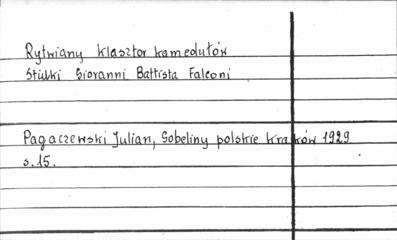 Rytwiany klasztor kamedułów
Stiuki Giovanni Battista Falconi
Pagaczewski Julian, Gobeliny polskie Kraków 1929
s. 15.